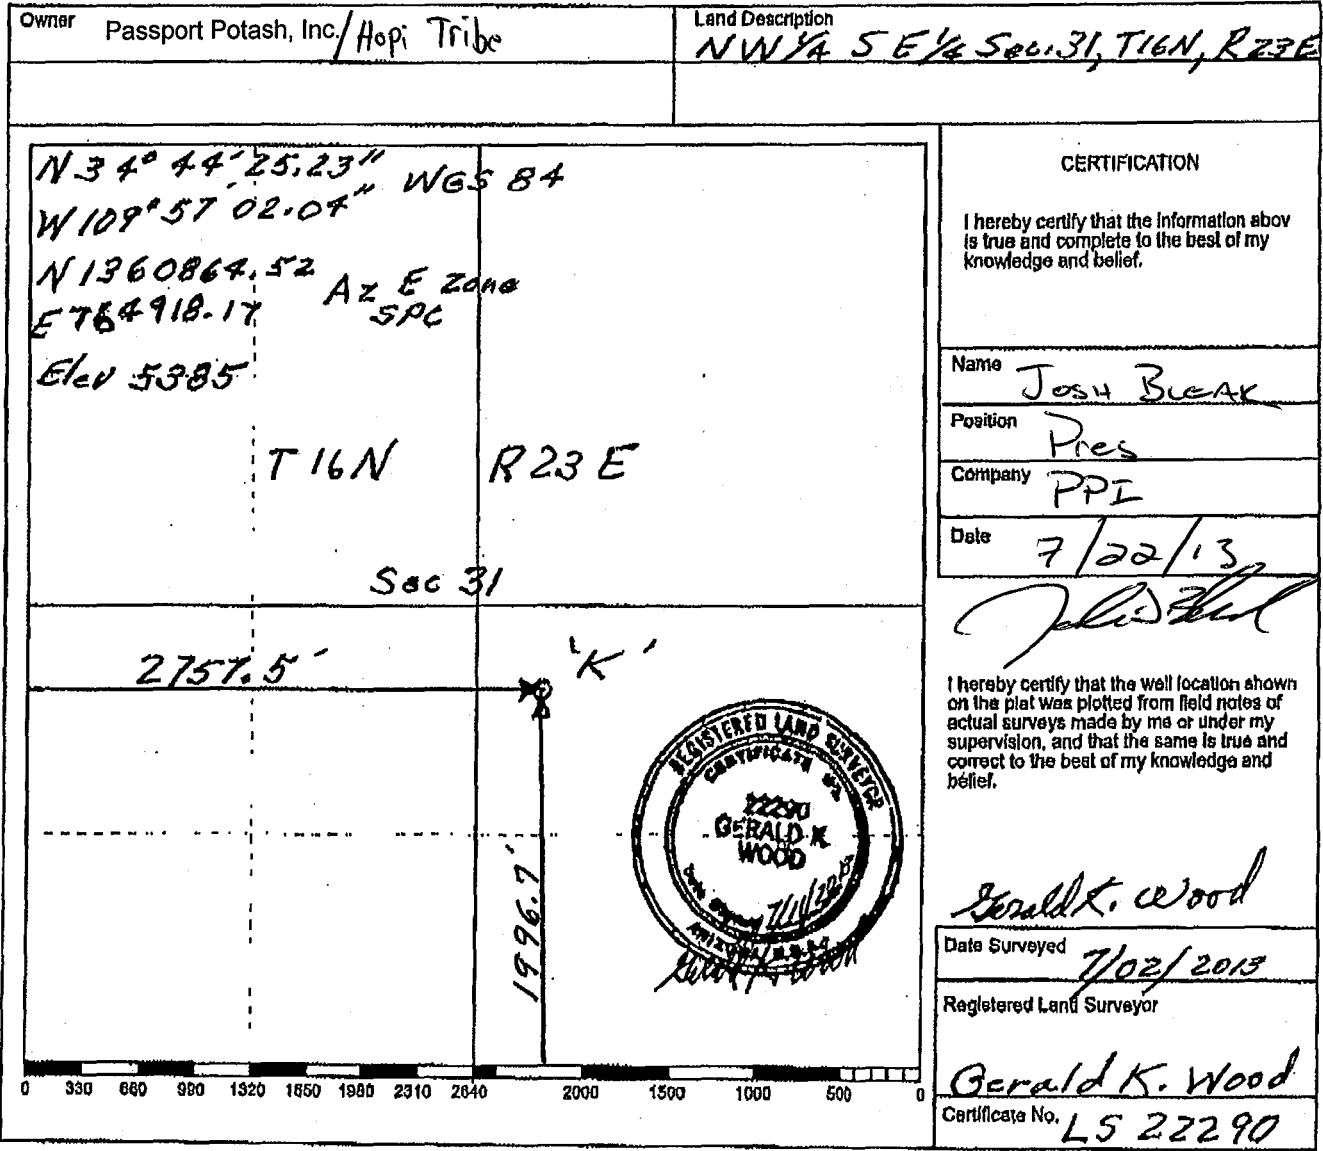 Owner Passport Potash, Inc./Hopi Tribe
Land Description
NW 1/4 S E 1/4 Sec. 31, T16N, R23E
N 34° 44' 25.23" WGS 84
W 109° 57' 02.04"
N 1360864.52
E 764918.17
Az E Zone
SPC
Elev 5385
T 16N R 23 E
Sec 31
2757.5'
'K'
1996.7'
REGISTERED LAND SURVEYOR
CERTIFICATE No.
22290
GERALD K.
WOOD
ARIZONA U.S.A.
Gerald K. Wood
0 330 660 990 1320 1650 1980 2310 2640 2000 1500 1000 500 0
CERTIFICATION
I hereby certify that the information abov
is true and complete to the best of my
knowledge and belief.
Name Josh Bleak
Position Pres
Company PPI
Date 7/22/13
I hereby certify that the well location shown
on the plat was plotted from field notes of
actual surveys made by me or under my
supervision, and that the same is true and
correct to the best of my knowledge and
belief.
Gerald K. Wood
Date Surveyed 7/02/2013
Registered Land Surveyor
Gerald K. Wood
Certificate No. LS 22290